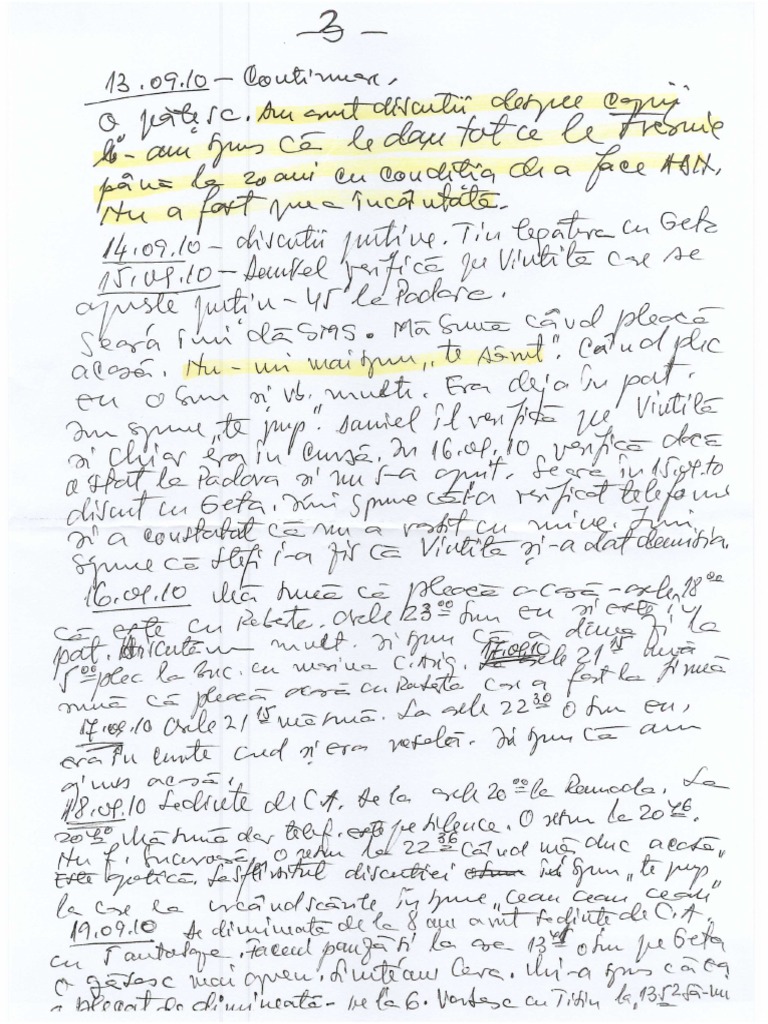 - 3 -
13.09.10 - Continuare.
o pățesc. Am avut discuții despre copii
i-am spus că le dau tot ce le trebuie
până la 20 ani cu condiția de a face ADN.
Nu a fost prea încântată.
14.09.10 - discuții puține. Țin legătura cu Geta
15.09.10 - Daniel verifică pe Vintilă care se
oprește puțin - 45 la Padova.
Seară îmi dă SMS. Mă sună când pleacă
acasă. Nu-mi mai spun „te sărut". Când plec
eu o sun și vb. multe. Era deja în pat.
Îm spune „te pup". Daniel îl verifică pe Vintilă
și chiar era în cursă. În 16.09.10 verifică dacă
a stat la Padova și nu s-a oprit. Seară în 15.09.10
discut cu Geta. Îmi spune că i-a verificat telefonul
și a constatat că nu a vorbit cu mine. Îmi
spune că Stefi i-a zis că Vintilă și-a dat demisia.
16.09.10 Mă sună că pleacă acasă - orele 18 00
că este cu . Orele 23 00 sun eu și este în
pat. Discutăm mult. Îi spun că a doua zi la
5 00 plec la Buc. cu mașina 17.09.10 orele 21 15 mă
sună că pleacă acasă cu care a fost la firmă
17.09.10 Orele 21 15 mă sună. La orele 22 30 o sun eu,
era în curte cred și era veselă. Îi spun că am
ajuns acasă.
18.09.10 Ședințe de C.A. de la orele 20 00 la Ramada. La
20 40 Mă sună dar telef. este pe silence. O retun la 20 46.
Nu f. bucuroasă. O retun la 22 36 când mă duc acasă,
Este apatică. La sfîrsitul discutiei îi spun „te pup"
la care ea îmi spune „ceau ceau ceau"
19.09.10 De dimineată de la 8 am avut ședințe de C.A.
cu . Facem pauză și la ora 13 o sun pe Geta
o găsesc mai Mi-a spus că ea
a plecat de dimineață - de la 6. Vorbesc cu Titin la 13 52 să-mi